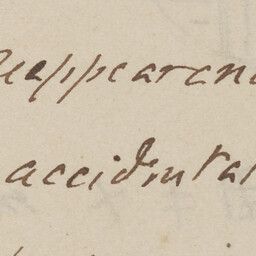 Reappearan
accidental